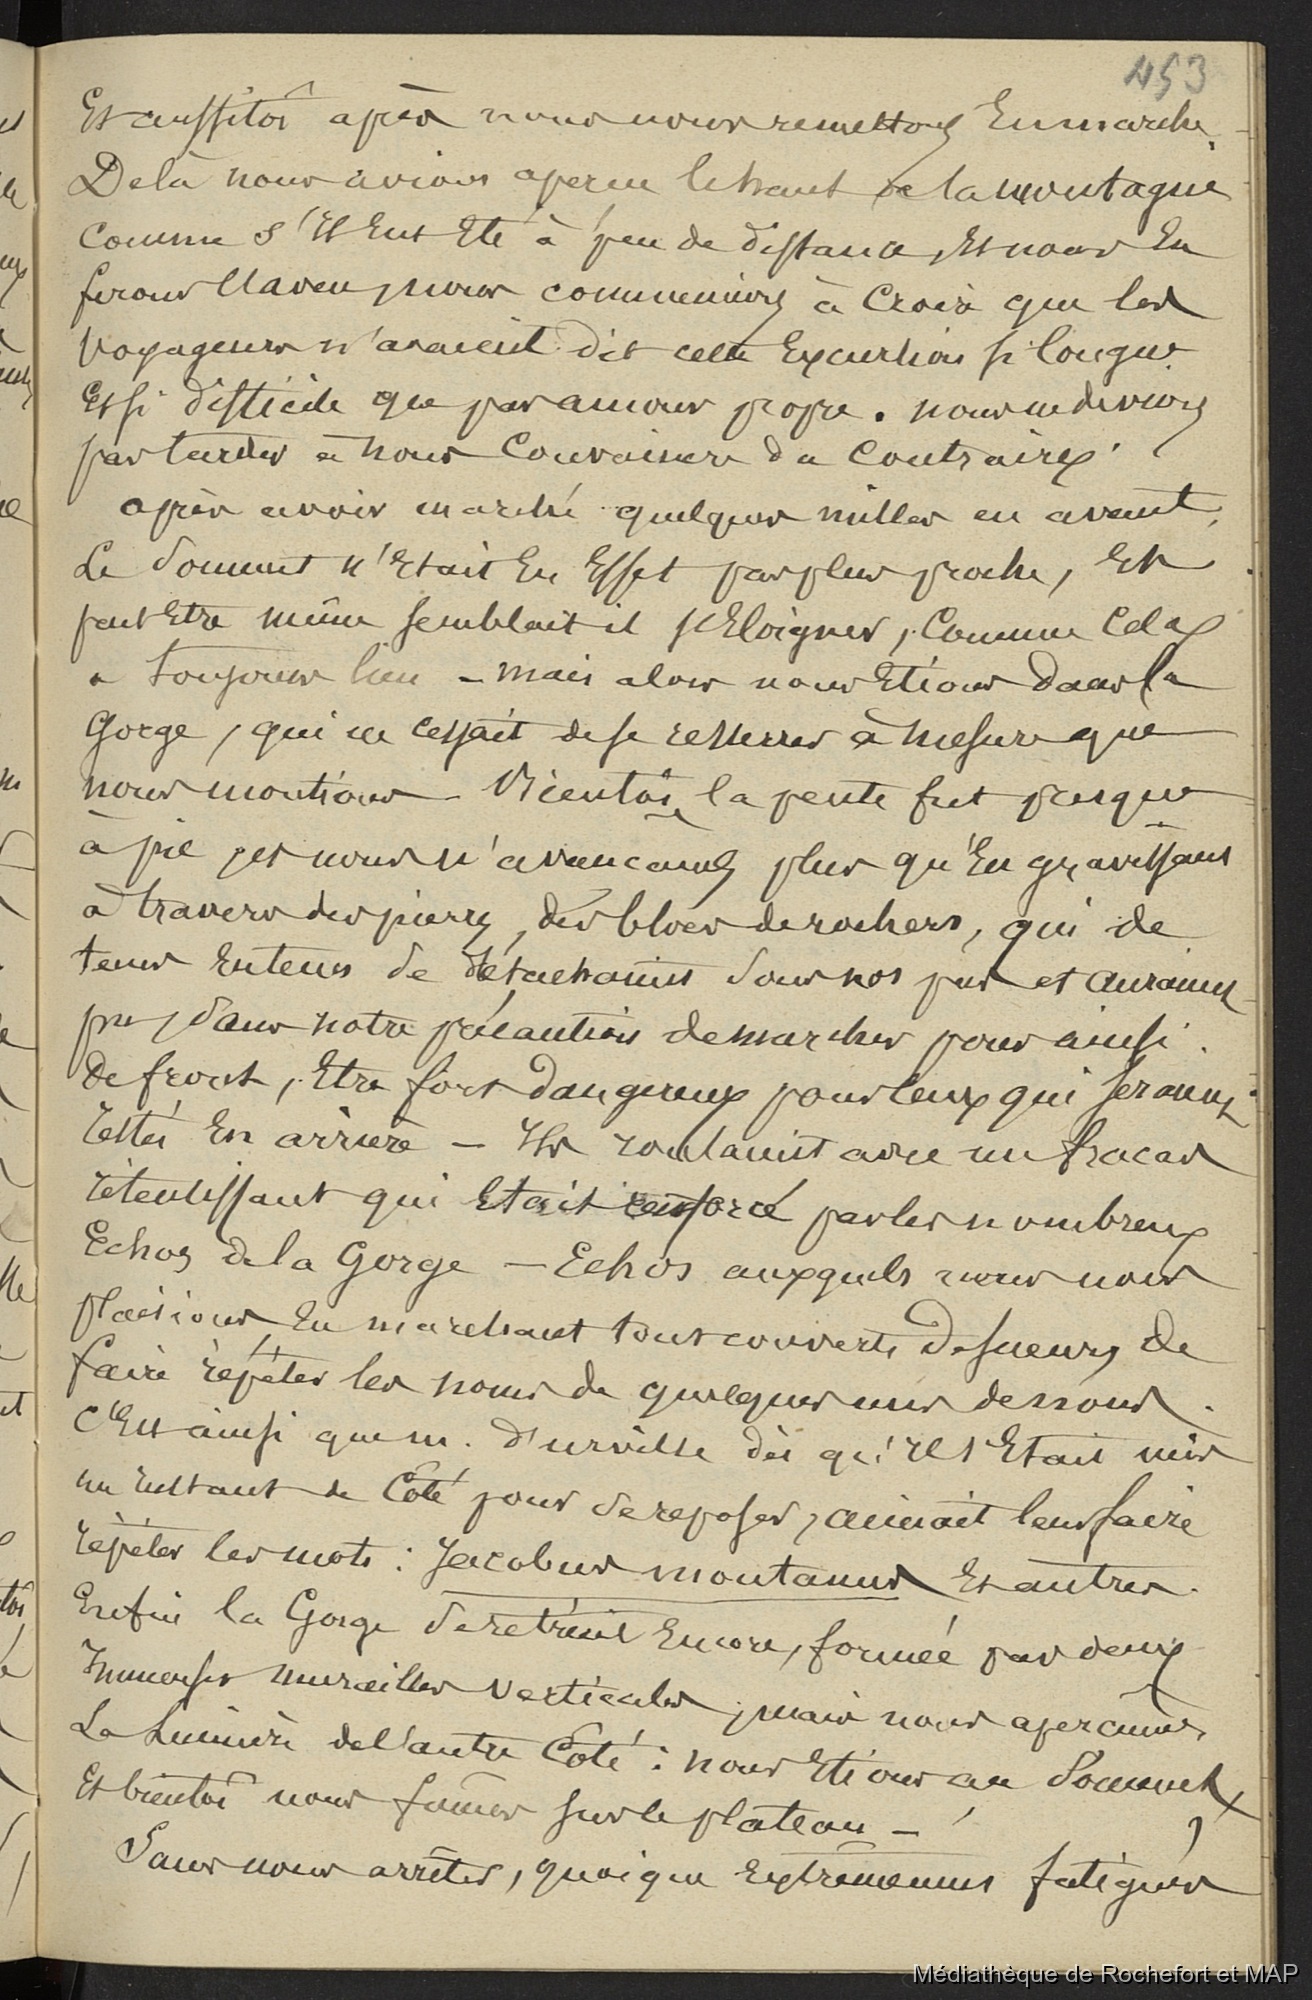 453
Et aussitôt après nous nous remettons En marche.
De là nous avions aperçu le haut de la montagne
comme s'Il Eut Eté à peu de distance, Et nous En
ferons l'aveu, nous commencions à Croire que les
voyageurs n'avaient dit cette Excursion si longue
Et si difficile que par amour propre. nous ne devions
pas tarder à nous Convaincre du Contraire.
après avoir marché quelques milles en avant,
Le Sommet n'Etait En Effet pas plus proche, Et
peut Etre même semblait il s'Eloigner, Comme Cela
a toujours lieu - mais alors nous Etions dans la
Gorge, qui ne cessait de se resserrer à mesure que
nous montions - Bientôt la pente fut presque
à pic, et nous n'avancions plus qu'En gravissant
à travers des pierres, des blocs de rochers, qui de
tems En tems se détachaient sous nos pas et auraient
pu, sans notre précaution de marcher pour ainsi
de front, Etre fort dangereux pour Ceux qui seraient
restés En arrière - Ils roulaient avec un fracas
retentissant qui Etait renforcé par les nombreux
Echos de la Gorge - Echos auxquels nous nous
plaisions, En marchant tout couverts de sueurs, de
faire répéter les noms de quelques uns de nous.
C'Est ainsi que m. d'urville dès qu'Il s'Etait mis
un Instant de Côté pour se reposer, aimait leur faire
répéter les mots : Jacobus montanus Et autres.
Enfin la Gorge se rétrécit Encore, formée par deux
Immenses murailles verticales, mais nous aperçumes
La Lumière de l'autre Côté : nous Etions au Sommet,
Et bientôt nous fûmes sur le plateau -
Sans nous arrêter, quoique Extrêmement fatigués
Médiathèque de Rochefort et MAP